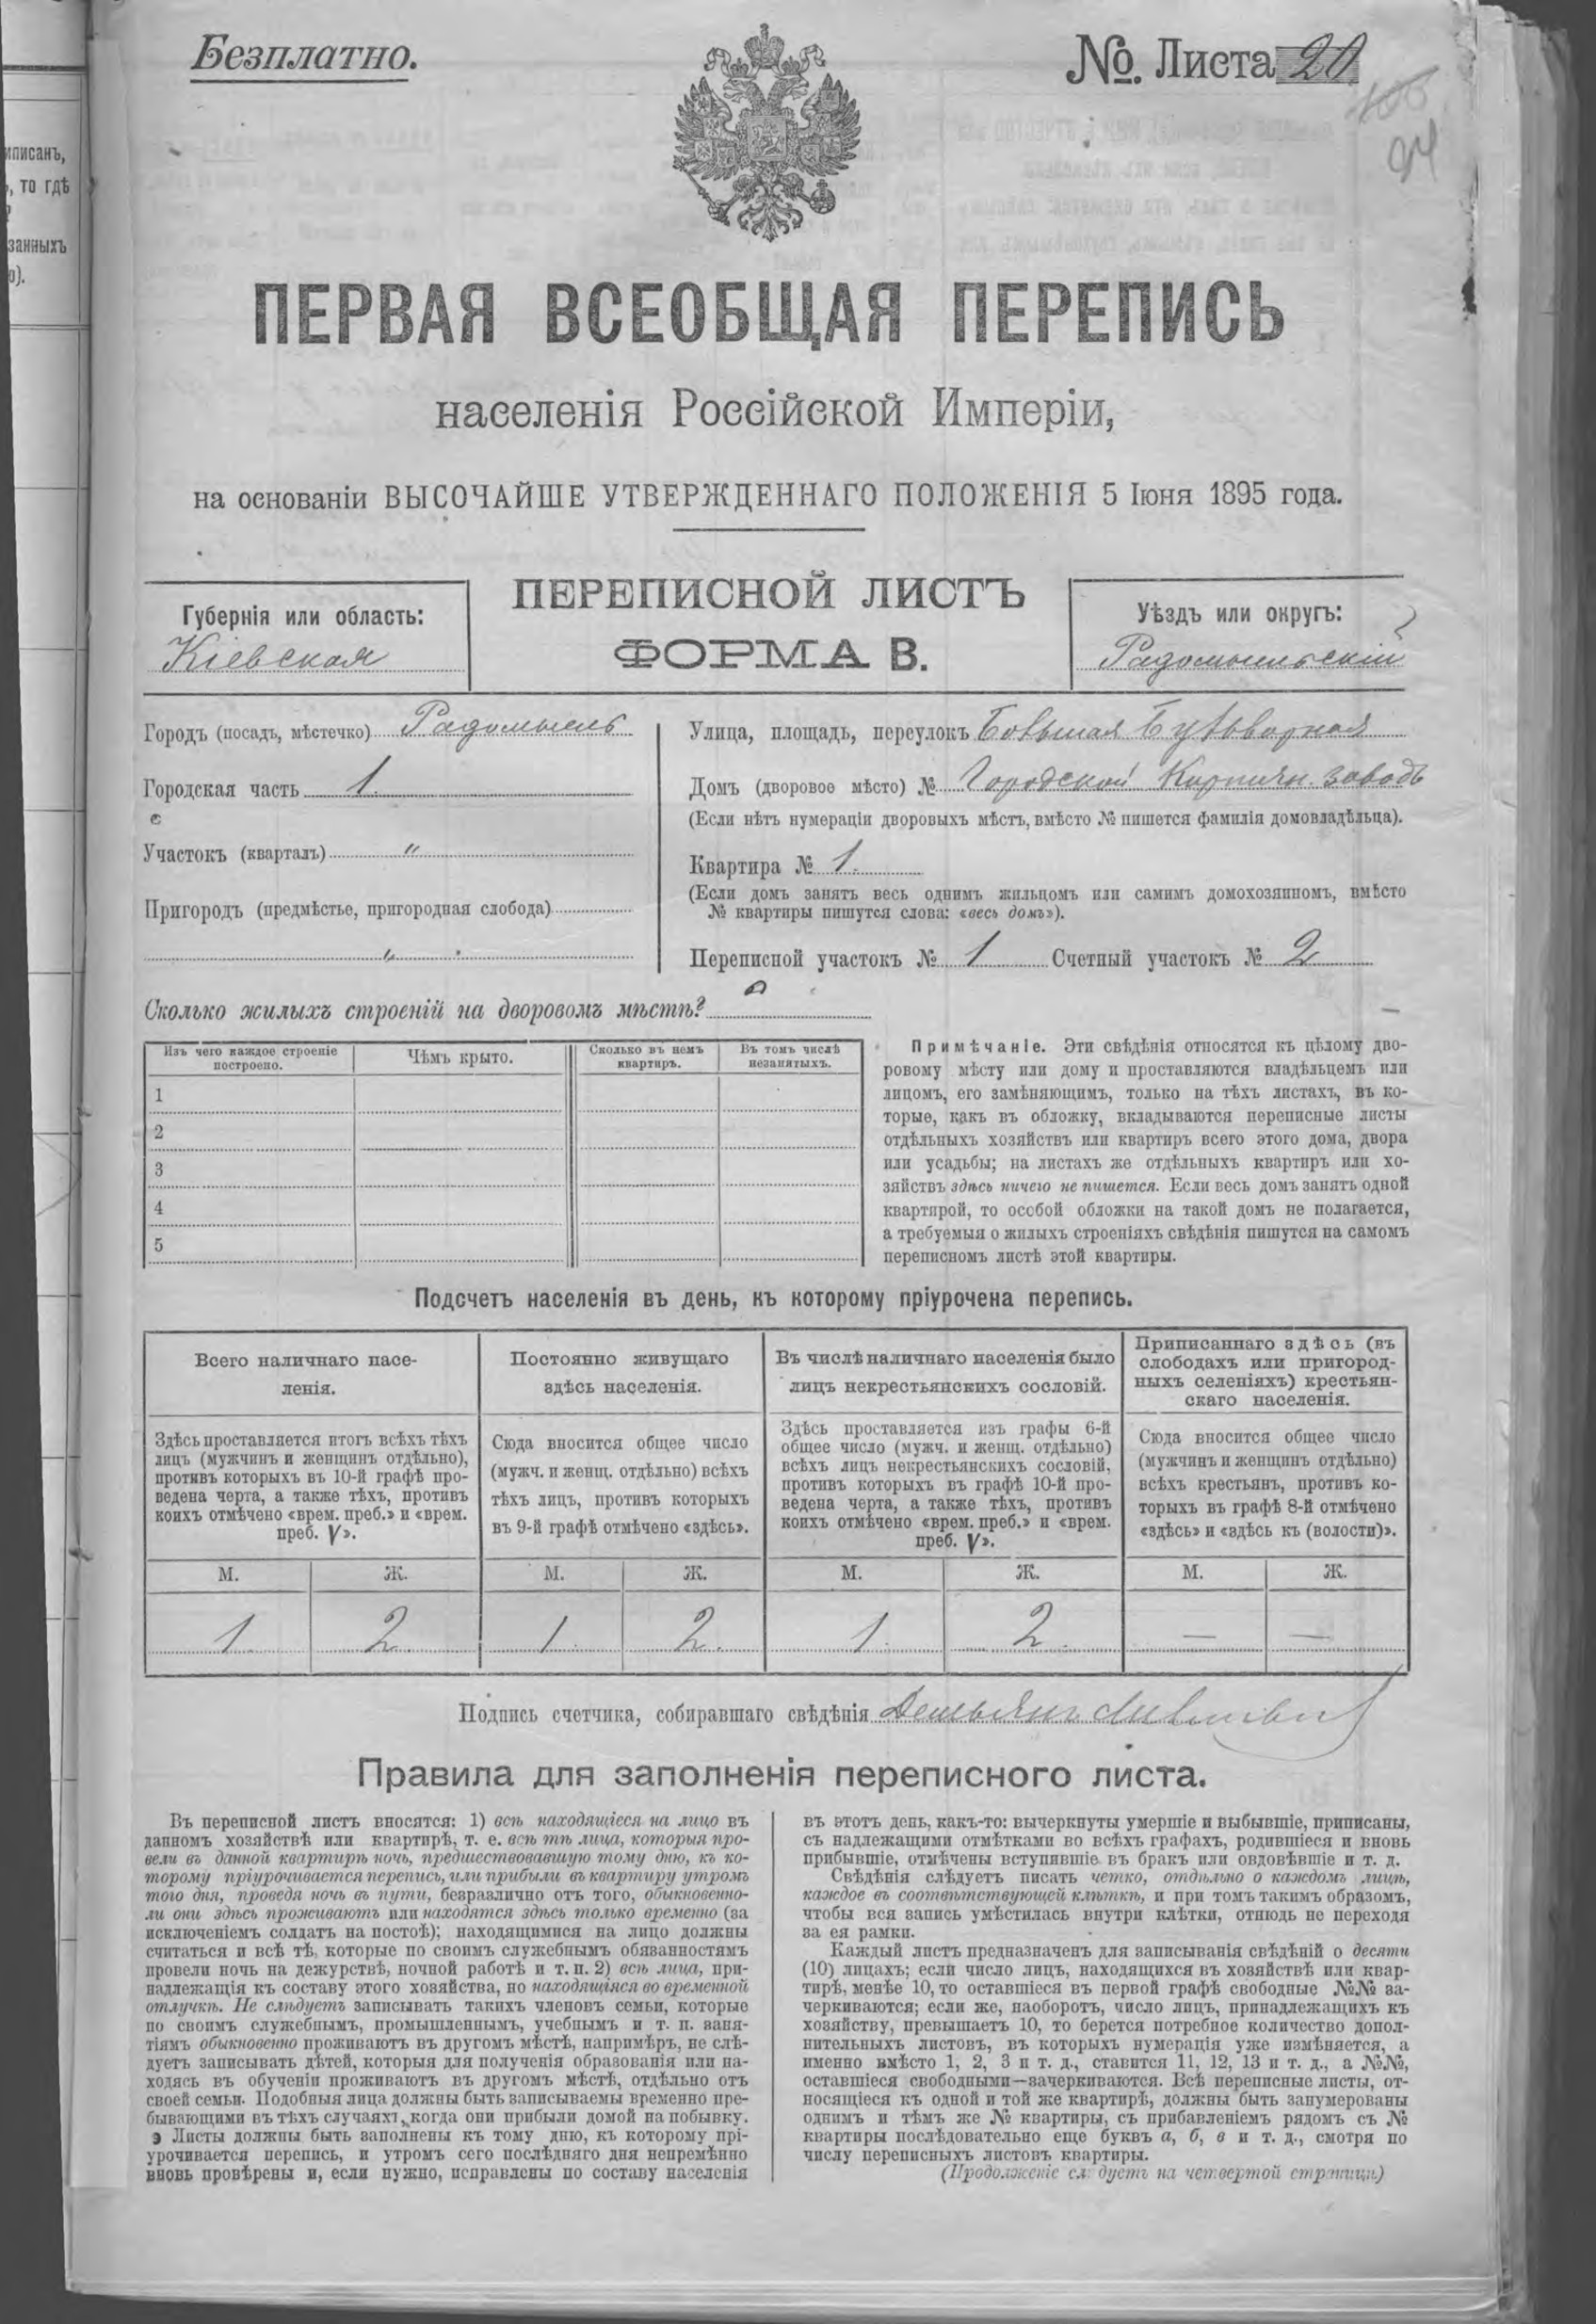 Безплатно.
№. Листа 20
94
иписанъ,
, то гдѣ
занныхъ
ПЕРВАЯ ВСЕОБЩАЯ ПЕРЕПИСЬ
населенія Россійской Имперіи,
на основаніи ВЫСОЧАЙШЕ УТВЕРЖДЕННАГО ПОЛОЖЕНІЯ 5 Іюня 1895 года.
Губернія или область:
Кіевская
ПЕРЕПИСНОЙ ЛИСТЪ
ФОРМА В.
Уѣздъ или округъ:
Радомысльскій
Городъ (посадъ, мѣстечко) Радомысль
Городская часть 1.
Участокъ (кварталъ) "
Пригородъ (предмѣстье, пригородная слобода)
"
Улица, площадь, переулокъ Большая Бульварная
Домъ (дворовое мѣсто) № Городской Кирпичн. заводъ
(Если нѣтъ нумераціи дворовыхъ мѣстъ, вмѣсто № пишется фамилія домовладѣльца).
Квартира № 1.
(Если домъ занятъ весь однимъ жильцомъ или самимъ домохозяиномъ, вмѣсто
№ квартиры пишутся слова: «весь домъ»).
Переписной участокъ № 1 Счетный участокъ № 2
Сколько жилыхъ строеній на дворовомъ мѣстѣ?
Изъ чего каждое строеніе
построено.
Чѣмъ крыто.
Сколько въ немъ
квартиръ.
Въ томъ числѣ
незанятыхъ.
1
2
3
4
5
Примѣчаніе. Эти свѣдѣнія относятся къ цѣлому дво-
ровому мѣсту или дому и проставляются владѣльцемъ или
лицомъ, его замѣняющимъ, только на тѣхъ листахъ, въ ко-
торые, какъ въ обложку, вкладываются переписные листы
отдѣльныхъ хозяйствъ или квартиръ всего этого дома, двора
или усадьбы; на листахъ же отдѣльныхъ квартиръ или хо-
зяйствъ здѣсь ничего не пишется. Если весь домъ занятъ одной
квартирой, то особой обложки на такой домъ не полагается,
а требуемыя о жилыхъ строеніяхъ свѣдѣнія пишутся на самомъ
переписномъ листѣ этой квартиры.
Подсчетъ населенія въ день, къ которому пріурочена перепись.
Всего наличнаго насе-
ленія.
Постоянно живущаго
здѣсь населенія.
Въ числѣ наличнаго населенія было
лицъ некрестьянскихъ сословій.
Приписаннаго здѣсь (въ
слободахъ или пригород-
ныхъ селеніяхъ) крестьян-
скаго населенія.
Здѣсь проставляется итогъ всѣхъ тѣхъ
лицъ (мужчинъ и женщинъ отдѣльно),
противъ которыхъ въ 10-й графѣ про-
ведена черта, а также тѣхъ, противъ
коихъ отмѣчено «врем. преб.» и «врем.
преб. V».
Сюда вносится общее число
(мужч. и женщ. отдѣльно) всѣхъ
тѣхъ лицъ, противъ которыхъ
въ 9-й графѣ отмѣчено «здѣсь».
Здѣсь проставляется изъ графы 6-й
общее число (мужч. и женщ. отдѣльно)
всѣхъ лицъ некрестьянскихъ сословій,
противъ которыхъ въ графѣ 10-й про-
ведена черта, а также тѣхъ, противъ
коихъ отмѣчено «врем. преб.» и «врем.
преб. V».
Сюда вносится общее число
(мужчинъ и женщинъ отдѣльно)
всѣхъ крестьянъ, противъ ко-
торыхъ въ графѣ 8-й отмѣчено
«здѣсь» и «здѣсь къ (волости)».
М. Ж. М. Ж. М. Ж. М. Ж.
1. 2. 1. 2. 1. 2. — —
Подпись счетчика, собиравшаго свѣдѣнія Демьянъ
Правила для заполненія переписного листа.
Въ переписной листъ вносятся: 1) всѣ находящіеся на лицо въ
данномъ хозяйствѣ или квартирѣ, т. е. всѣ тѣ лица, которыя про-
вели въ данной квартирѣ ночь, предшествовавшую тому дню, къ ко-
торому пріурочивается перепись, или прибыли въ квартиру утромъ
того дня, проведя ночь въ пути, безразлично отъ того, обыкновенно-
ли они здѣсь проживаютъ или находятся здѣсь только временно (за
исключеніемъ солдатъ на постоѣ); находящимися на лицо должны
считаться и всѣ тѣ, которые по своимъ служебнымъ обязанностямъ
провели ночь на дежурствѣ, ночной работѣ и т. п. 2) всѣ лица, при-
надлежащія къ составу этого хозяйства, но находящіяся во временной
отлучкѣ. Не слѣдуетъ записывать такихъ членовъ семьи, которые
по своимъ служебнымъ, промышленнымъ, учебнымъ и т. п. заня-
тіямъ обыкновенно проживаютъ въ другомъ мѣстѣ, напримѣръ, не слѣ-
дуетъ записывать дѣтей, которыя для полученія образованія или на-
ходясь въ обученіи проживаютъ въ другомъ мѣстѣ, отдѣльно отъ
своей семьи. Подобныя лица должны быть записываемы временно пре-
бывающими въ тѣхъ случаяхъ, когда они прибыли домой на побывку.
Листы должны быть заполнены къ тому дню, къ которому прі-
урочивается перепись, и утромъ сего послѣдняго дня непремѣнно
вновь провѣрены и, если нужно, исправлены по составу населенія
въ этотъ день, какъ-то: вычеркнуты умершіе и выбывшіе, приписаны,
съ надлежащими отмѣтками во всѣхъ графахъ, родившіеся и вновь
прибывшіе, отмѣчены вступившіе въ бракъ или овдовѣвшіе и т. д.
Свѣдѣнія слѣдуетъ писать четко, отдѣльно о каждомъ лицѣ,
каждое въ соотвѣтствующей клѣткѣ, и при томъ такимъ образомъ,
чтобы вся запись умѣстилась внутри клѣтки, отнюдь не переходя
за ея рамки.
Каждый листъ предназначенъ для записыванія свѣдѣній о десяти
(10) лицахъ; если число лицъ, находящихся въ хозяйствѣ или квар-
тирѣ, менѣе 10, то оставшіеся въ первой графѣ свободные №№ за-
черкиваются; если же, наоборотъ, число лицъ, принадлежащихъ къ
хозяйству, превышаетъ 10, то берется потребное количество допол-
нительныхъ листовъ, въ которыхъ нумерація уже измѣняется, а
именно вмѣсто 1, 2, 3 и т. д., ставится 11, 12, 13 и т. д., а №№,
оставшіеся свободными—зачеркиваются. Всѣ переписные листы, от-
носящіеся къ одной и той же квартирѣ, должны быть занумерованы
однимъ и тѣмъ же № квартиры, съ прибавленіемъ рядомъ съ №
квартиры послѣдовательно еще буквъ а, б, в и т. д., смотря по
числу переписныхъ листовъ квартиры.
(Продолженіе слѣдуетъ на четвертой страницѣ)